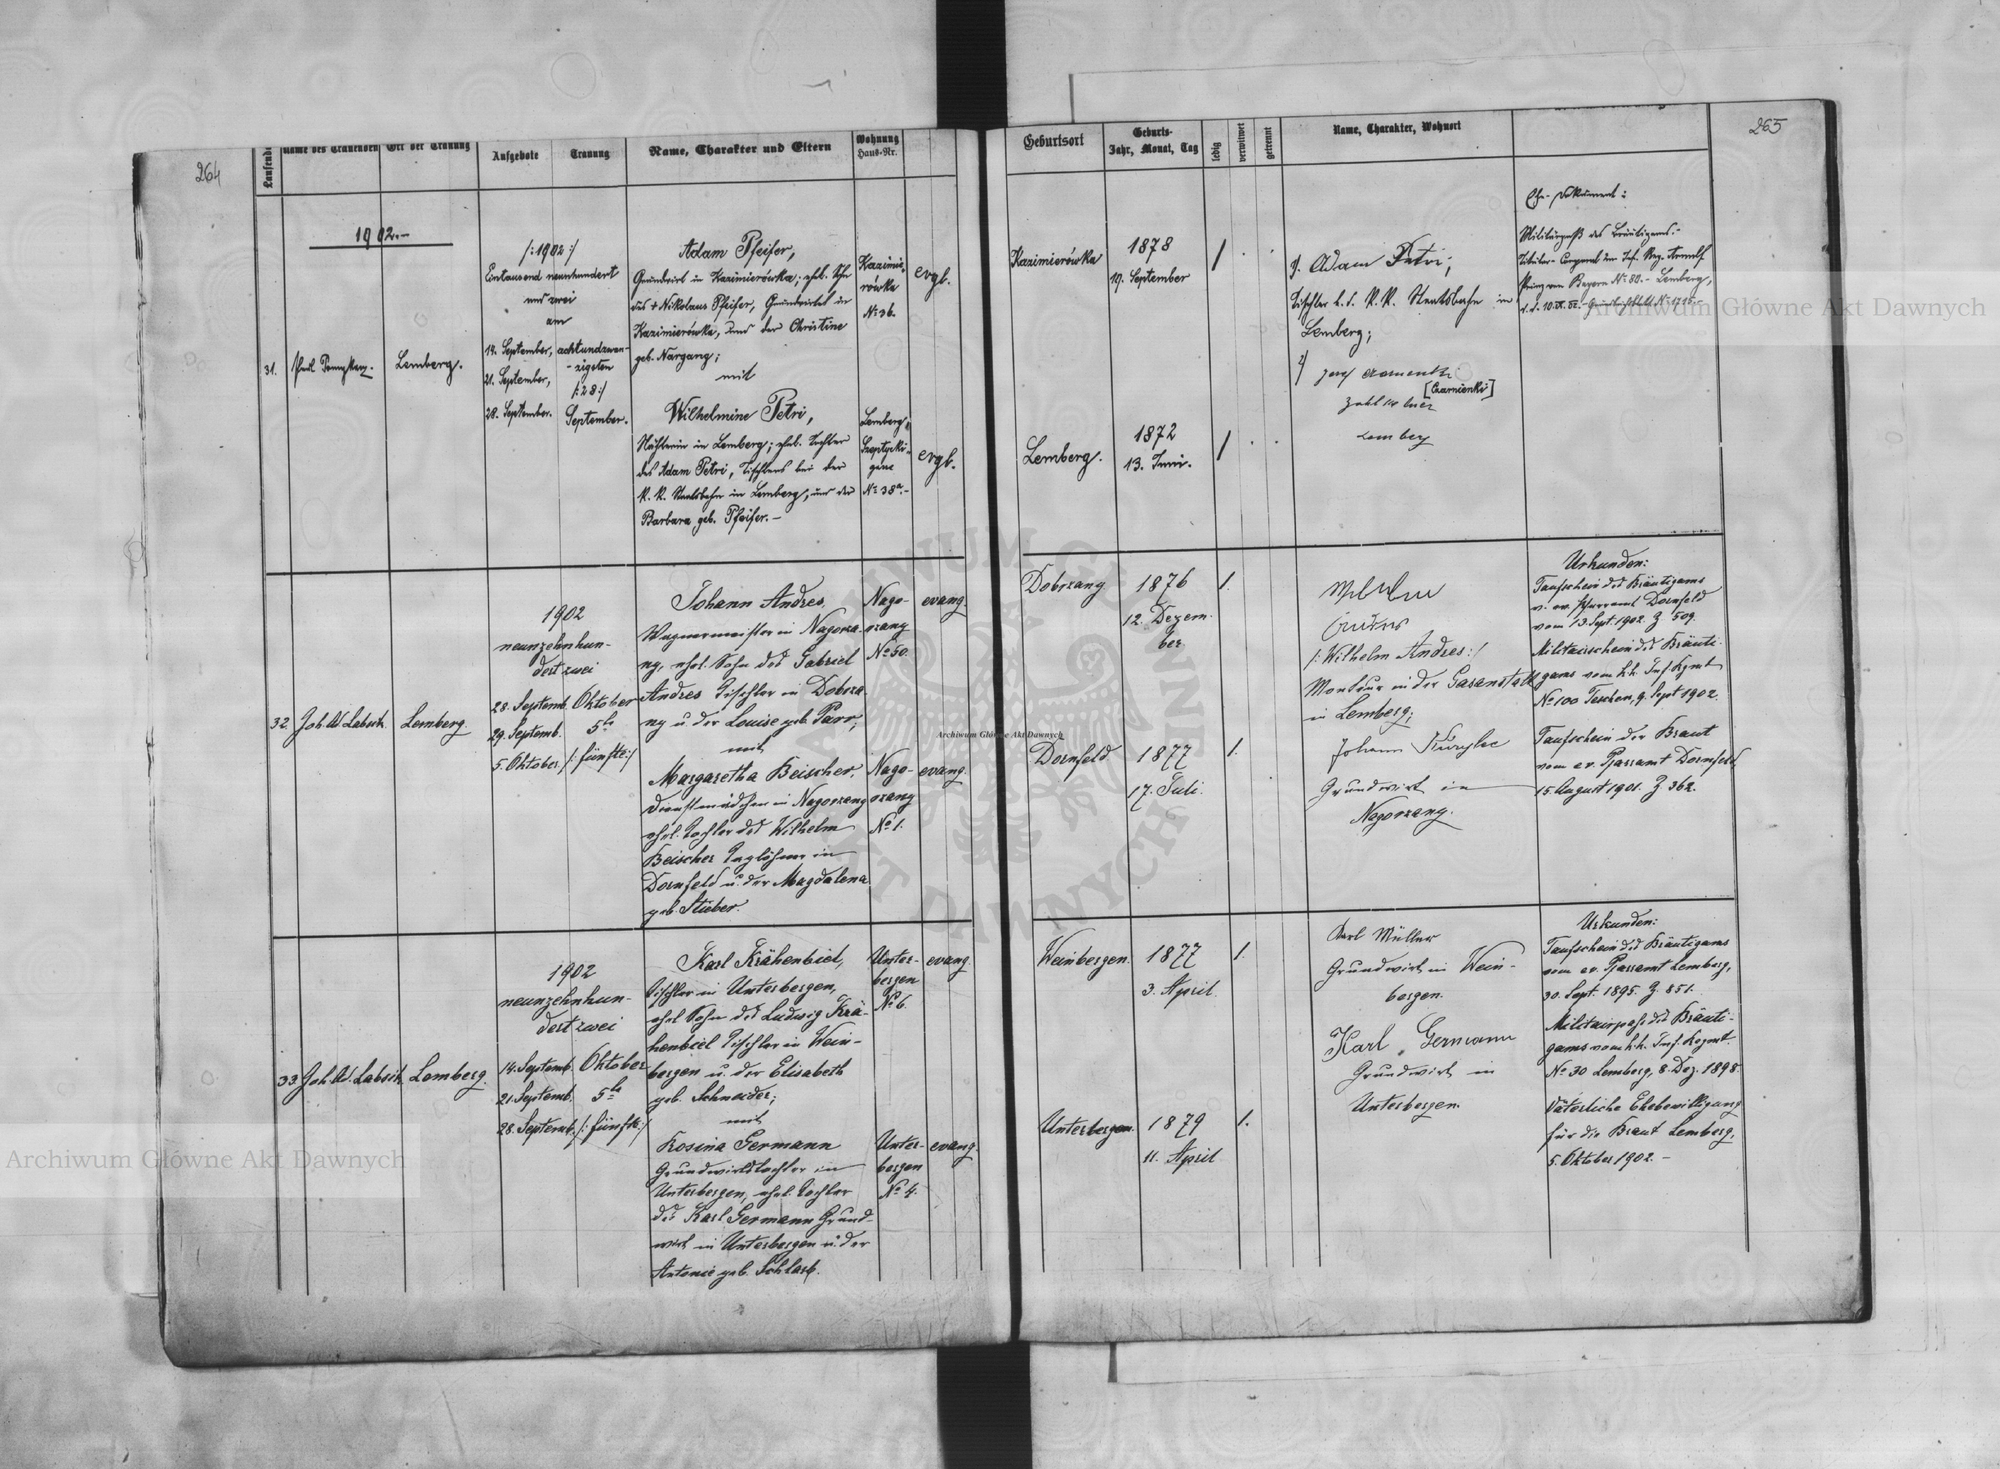 264
Laufende
Name des Trauenden
Ort der Trauung
Aufgebote
Trauung
Name, Charakter und Eltern
Wohnung
Haus-Nr.
1902.
31.
Lemberg.
/:1902:/
Eintausend neunhundert
und zwei
am
14. September,
21. September,
28. September.
achtundzwan-
-zigsten
/:28:/
September.
Adam Pfeifer,
Grundwirt in Kazimierówka; ehel. Sohn
des + Nikolaus Pfeifer, Grundwirtes in
Kazimierówka, und der Christine
geb. Nargang;
mit
Wilhelmine Petri,
Näherin in Lemberg; ehel. Tochter
des Adam Petri, Tischlers bei der
k. k. Staatsbahn in Lemberg, und der
Barbara geb. Pfeifer.-
Kazimie-
rówka
No 36.
evgl.
Lemberg,
Szeptycki-
gasse
No 38a.-
evgl.
32.
Joh. Ad. Labsik
Lemberg.
1902
neunzehnhun-
dert zwei
28. Septemb.
29. Septemb.
5. Oktober.
Oktober
5te
/:fünfte:/
Johann Andres,
Wagnermeister in Nagorza-
ny, ehel. Sohn des Gabriel
Andres Tischler in Dobrza-
ny u. der Louise geb. Parr;
mit
Margaretha Beischer,
Dienstmädchen in Nagorzany
ehel. Tochter des Wilhelm
Beischer Taglöhner in
Dornfeld u. der Magdalena
geb. Stüber.
Nago-
rzany
No 50.
evang.
Nago-
rzany
No 1.
evang.
33.
Joh. Ad. Labsik
Lemberg.
1902
neunzehnhun-
dert zwei
14. Septemb.
21. Septemb.
28. Septemb.
Oktober
5te
/:fünfte:/
Karl Krähenbiel,
Tischler in Unterbergen,
ehel. Sohn des Ludwig Krä-
henbiel Tischler in Wein-
bergen u. der Elisabeth
geb. Schneider;
mit
Rosina Germann
Grundwirtstochter in
Unterbergen, ehel. Tochter
des Karl Germann Grund-
wirt in Unterbergen u. der
Antonie geb. Schlarb.
Unter-
bergen
No 6.
evang.
Unter-
bergen
No 4.
evang.
265
Geburtsort
Geburts-
Jahr, Monat, Tag
ledig
verwitwet
getrennt
Name, Charakter, Wohnort
Kazimierówka
1878
19. September
1). Adam Petri,
Tischler b. d. k. k. Staatsbahn in
Lemberg;
2)
[Czarnienki]
Lemberg
Lemberg.
1872
13. Juni.
Ehe-Dokument:
Militärpaß des Bräutigams:-
Prinz von Bayern No 80.- Lemberg,
Dobrzany
1876
12. Dezem-
ber
Wilhelm
Andres
/:Wilhelm Andres:/
Monteur in der Gasanstalt
in Lemberg;
Johann
Grundwirt in
Nagorzany.
Dornfeld
1877
17. Juli.
Urkunden:
Taufschein des Bräutigams
v. ev. Pfarramt Dornfeld
vom 13. Sept. 1902. Z 509.
Militairschein des Bräuti-
gams vom k. k. Inf. Rgmt
No 100 Teschen, 9. Sept 1902.
Taufschein der Braut
vom ev. Pfarramt Dornfeld
15. August 1901. Z 362.
Weinbergen.
1877
3. April.
Karl Müller
Grundwirt in Wein-
bergen.
Karl Germann
Grundwirt in
Unterbergen.
Unterbergen.
1879
11. April
Urkunden:
Taufschein des Bräutigams
vom ev. Pfarramt Lemberg,
30. Sept. 1895. Z. 851.
Militairpass des Bräuti-
gams vom k. k. Inf. Regmt.
No 30 Lemberg, 8. Dez. 1898.
Väterliche Ehebewilligung
für die Braut Lemberg,
5. Oktober 1902. -
Archiwum Główne Akt Dawnych
Archiwum Główne Akt Dawnych
Archiwum Główne Akt Dawnych